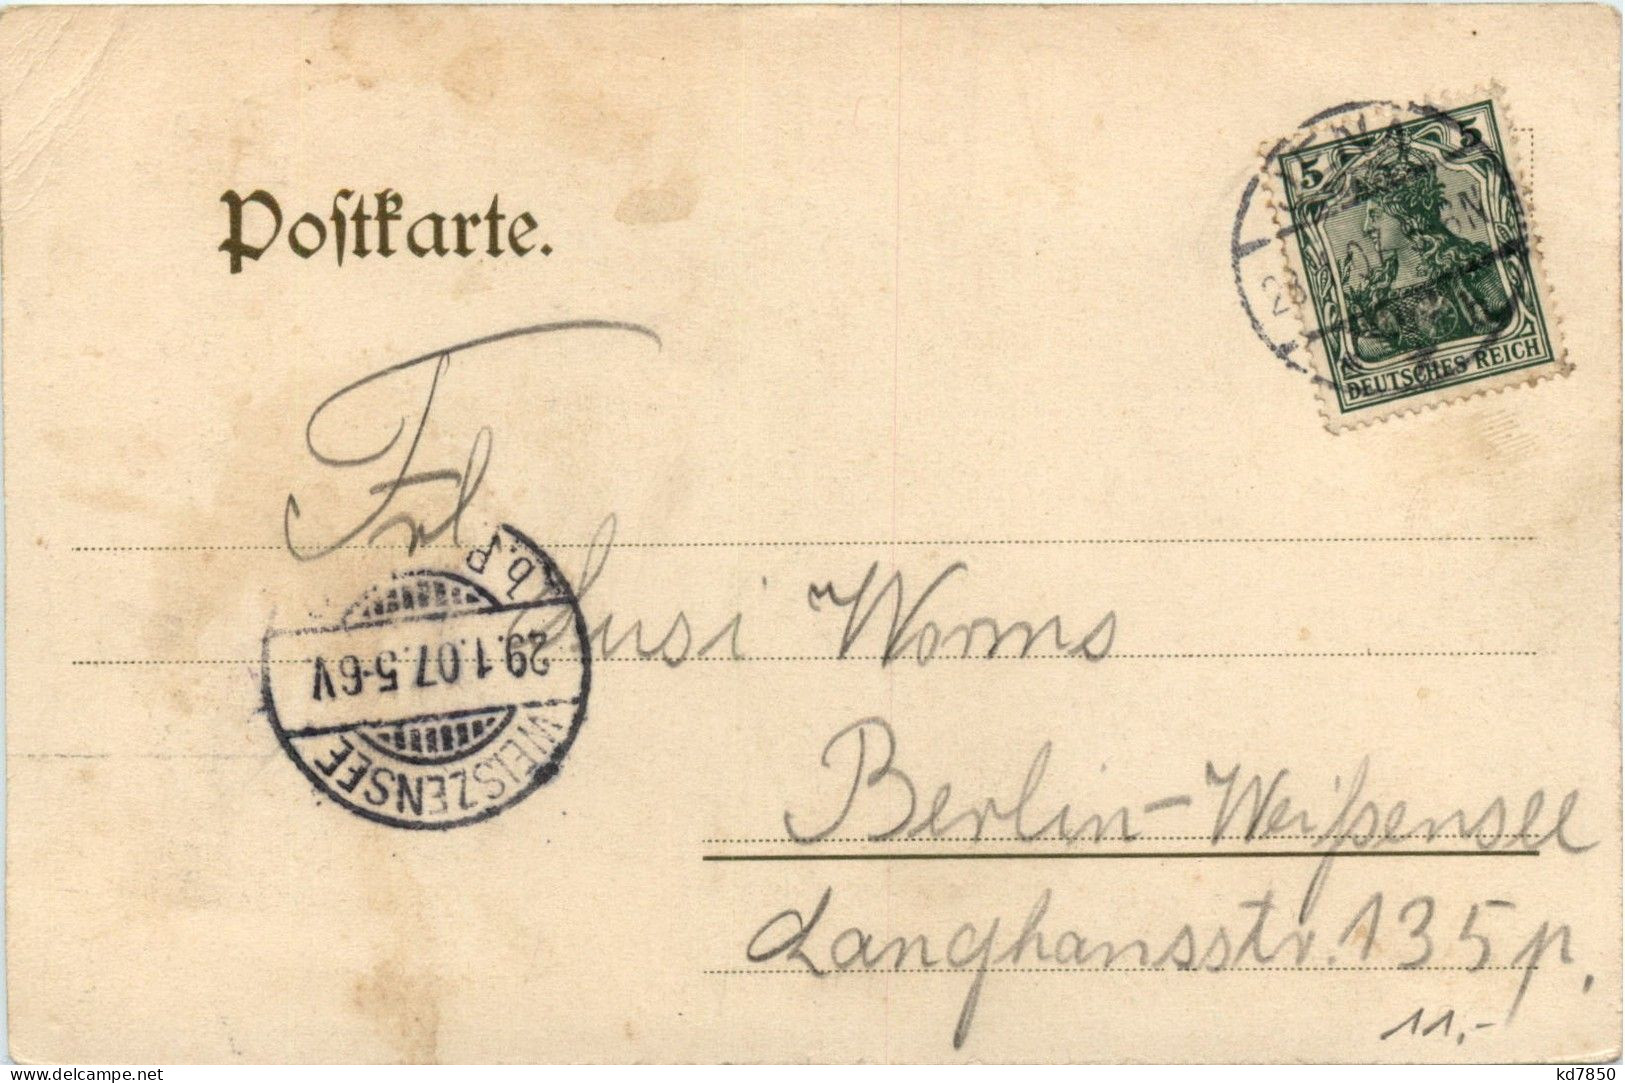 Postkarte.
5 5
DEUTSCHES REICH
Frl
Susi Worms
Berlin-Weißensee
Langhansstr. 135 p.
11,-
WEISZENSEE
29.1.07.5-6V.
b.
delcampe.net
kd7850